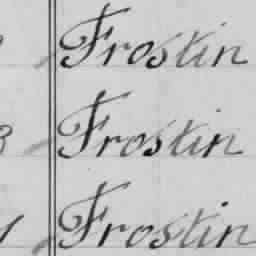 Frostin
3 Frostin
Frostin